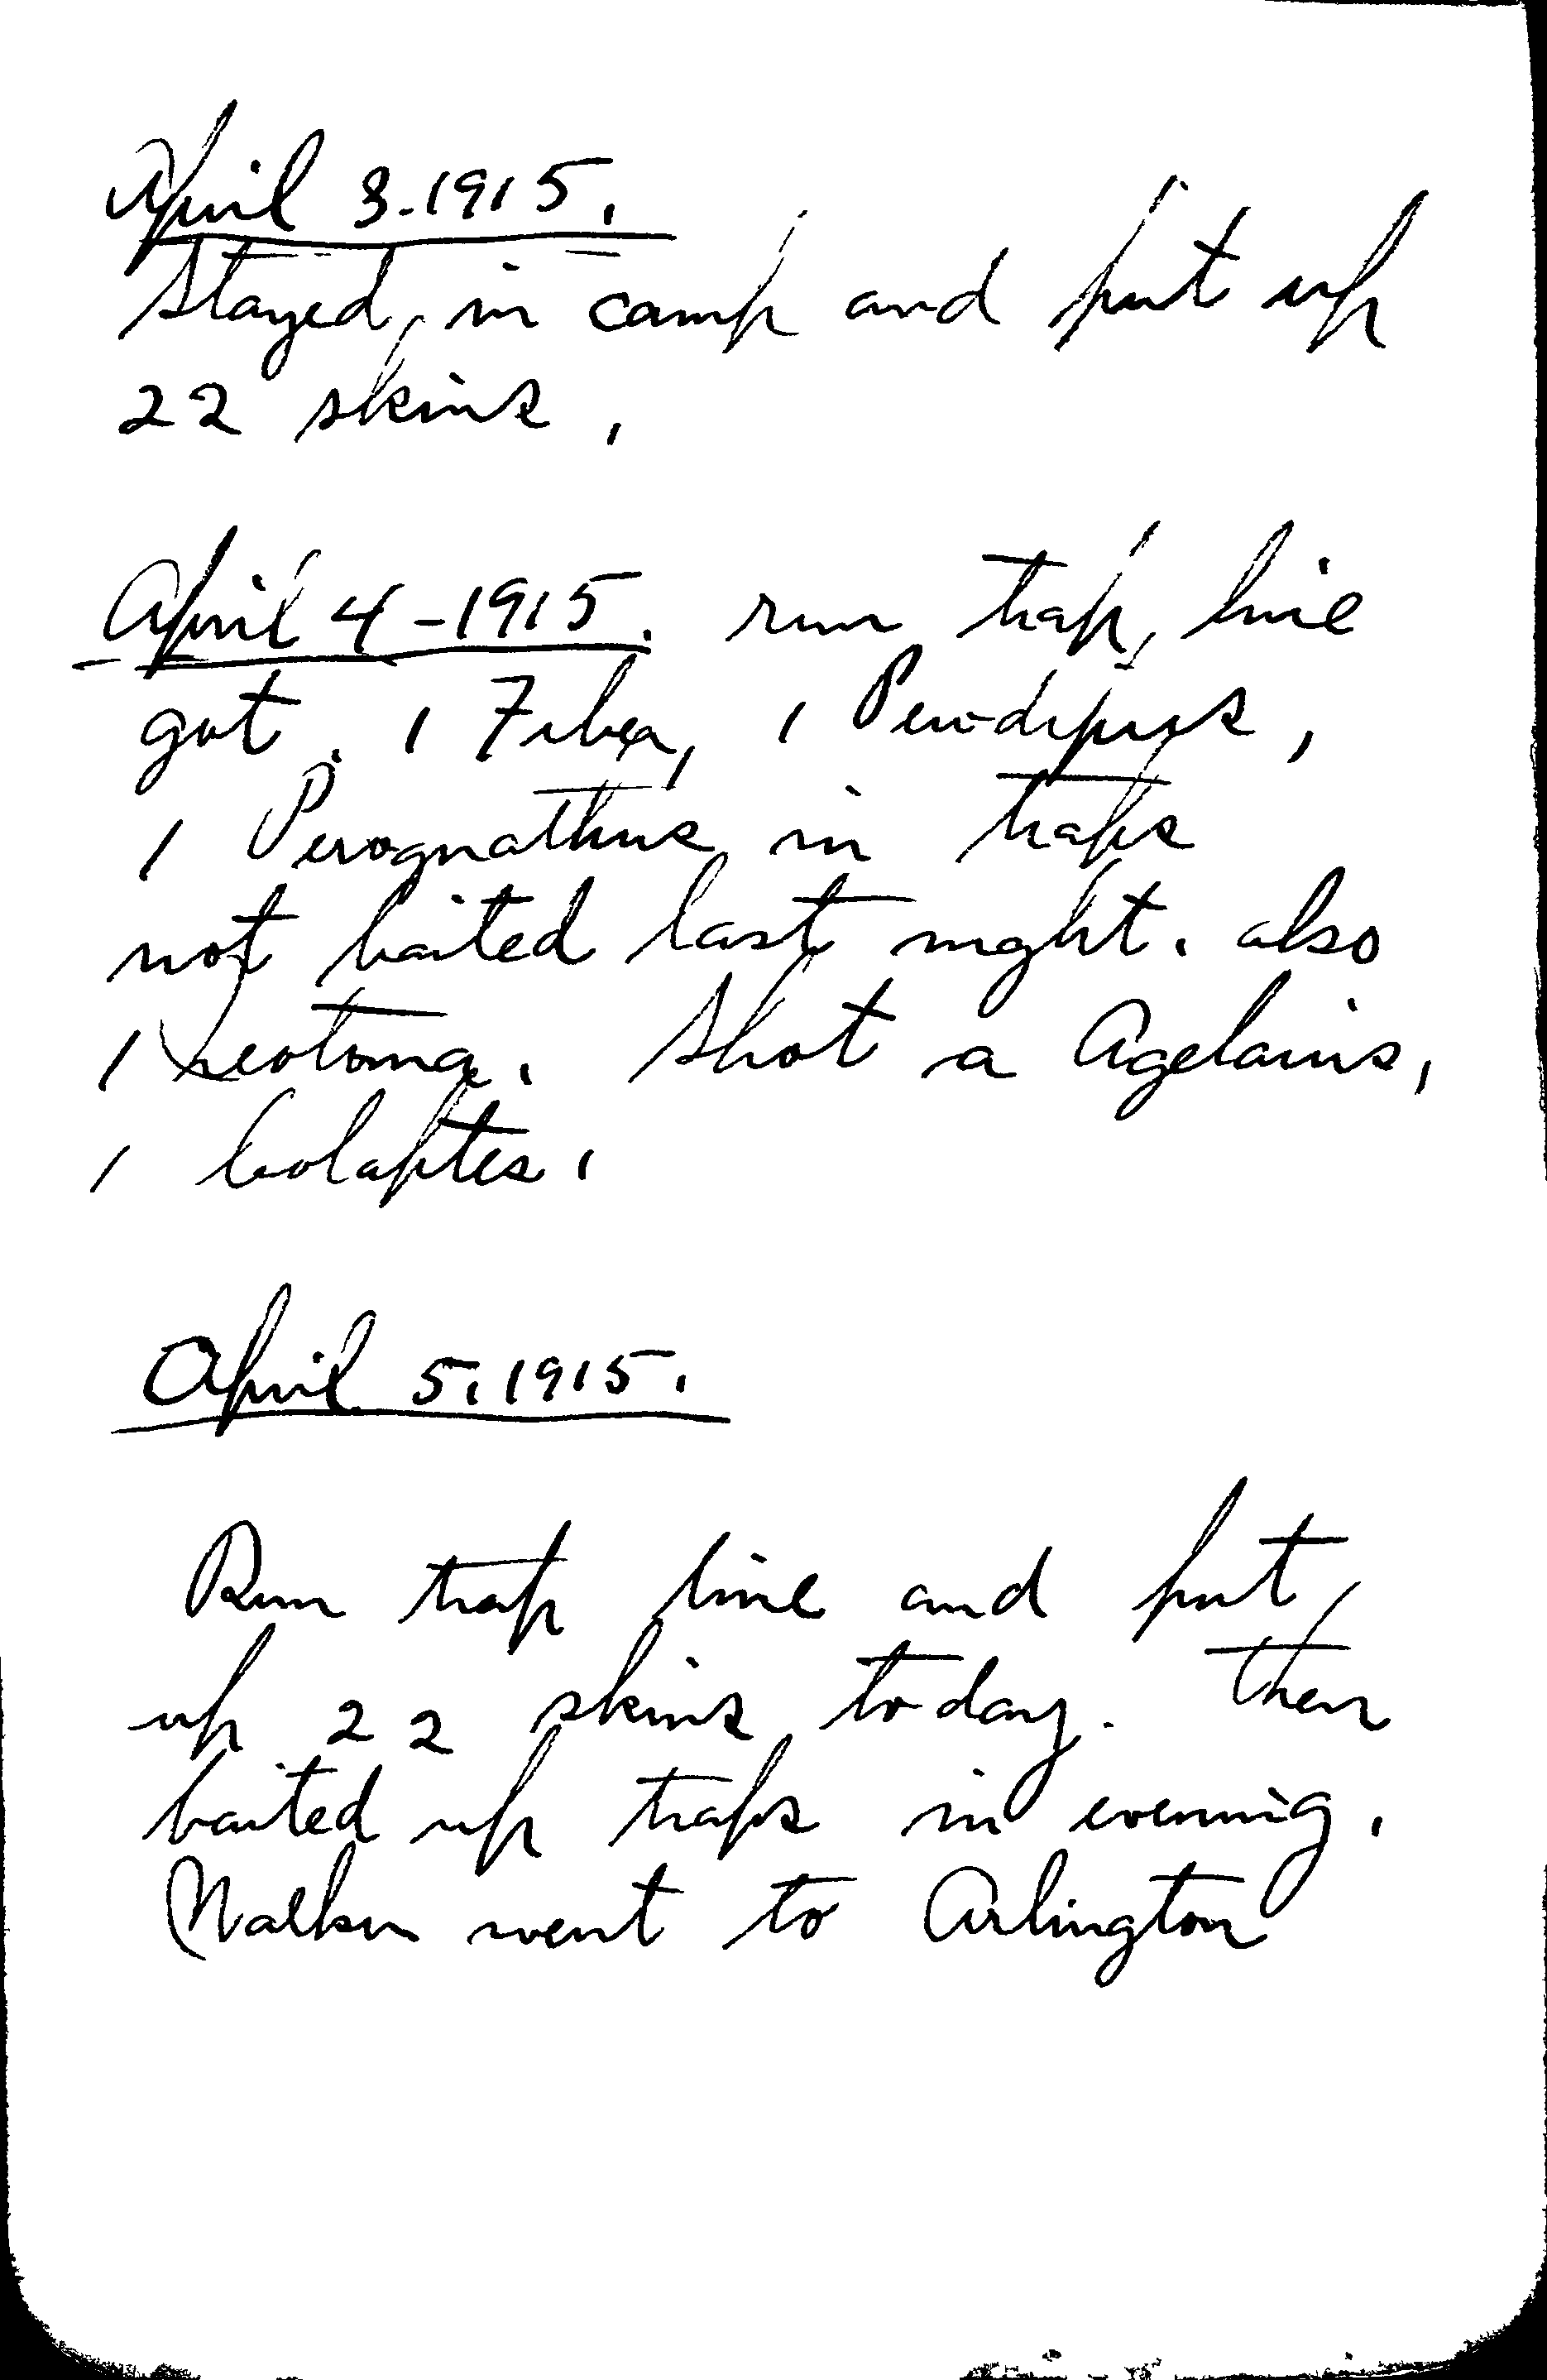 April 3.1915.
Stayed in camp and put up
22 skins.
April 4-1915. run trap line
got. 1 Fiber, 1 Perodipus,
1 Perognathus in traps
not baited last night. also
1 neotoma. Shot a Agelaius,
1 Colaptes.
April 5.1915.
Run trap line and put
up 22 skins today. then
baited up traps in evening.
Walker went to Arlington